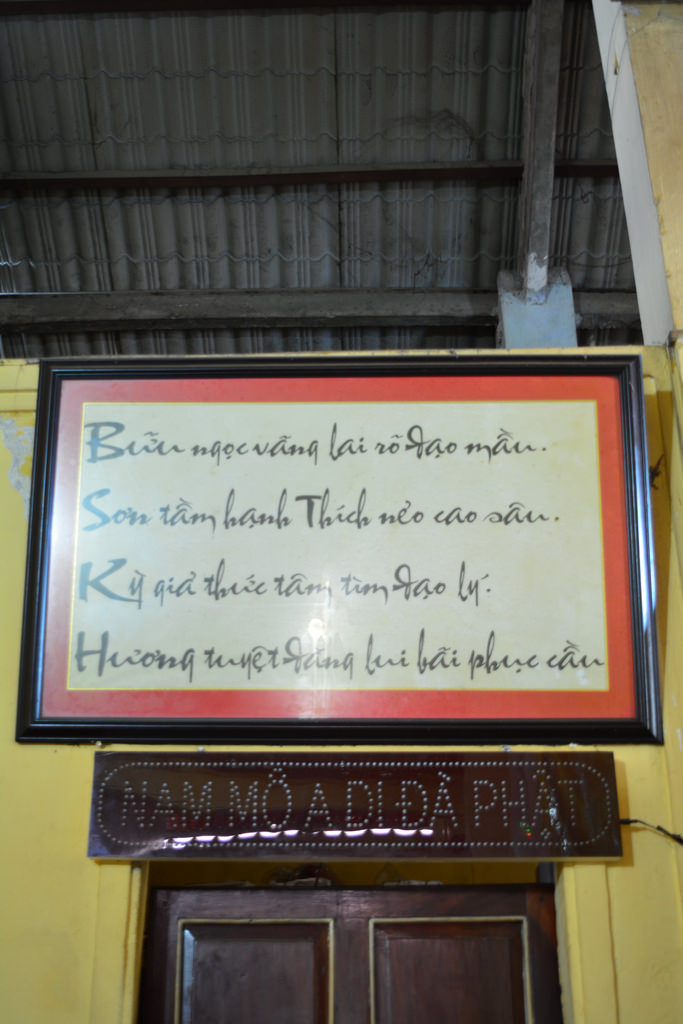 Bửu ngọc vầng lai rõ đạo mầu.
Sơn tầm hạnh Thích nẻo cao sâu.
Kỳ giả thức tâm tìm đạo lý.
Hương tuyệt đáng lui bái phục cầu
NAM MÔ A DI ĐÀ PHẬT